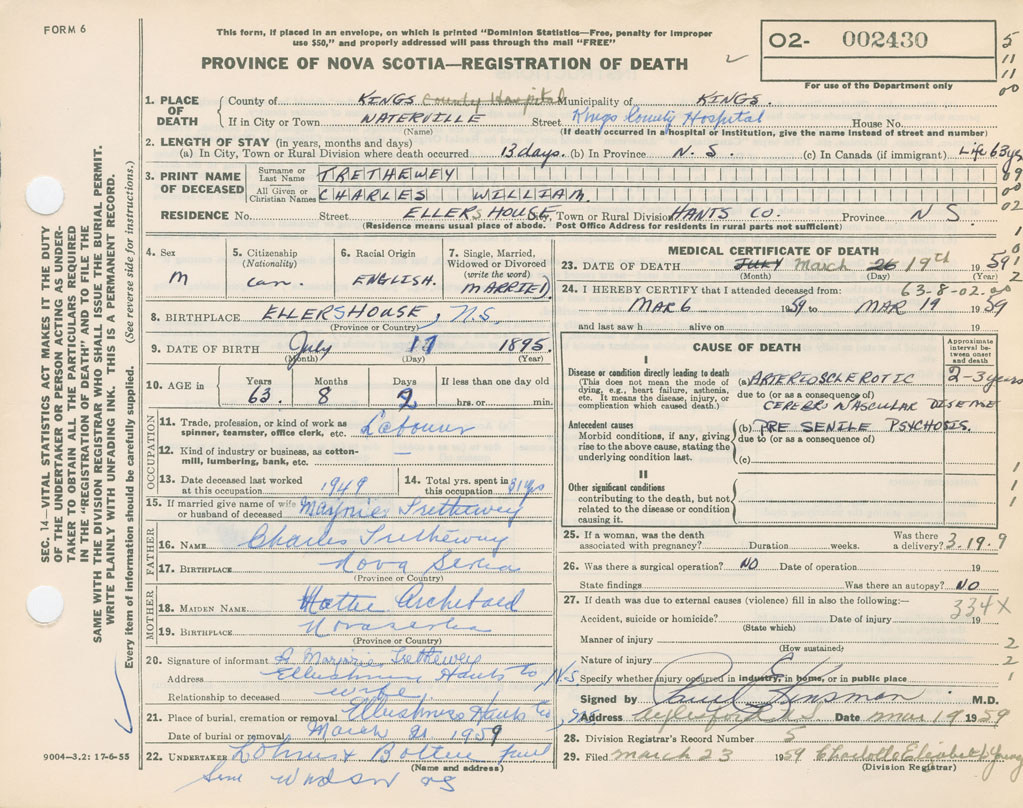 FORM 6
This form, if placed in an envelope, on which is printed "Dominion Statistics—Free, penalty for improper
use $50," and properly addressed will pass through the mail "FREE"
PROVINCE OF NOVA SCOTIA—REGISTRATION OF DEATH
O2- 002430
For use of the Department only
5
11
11
00
SEC. 14—VITAL STATISTICS ACT MAKES IT THE DUTY
OF THE UNDERTAKER OR PERSON ACTING AS UNDER-
TAKER TO OBTAIN ALL THE PARTICULARS REQUIRED
IN THE "REGISTRATION OF DEATH" AND TO FILE THE
SAME WITH THE DIVISION REGISTRAR WHO SHALL ISSUE THE BURIAL PERMIT.
WRITE PLAINLY WITH UNFADING INK. THIS IS A PERMANENT RECORD.
Every item of information should be carefully supplied. (See reverse side for instructions.)
1. PLACE OF DEATH
County of KINGS County Hospital Municipality of KINGS.
If in City or Town WATERVILLE Street Kings County Hospital House No.
(Name) (If death occurred in a hospital or institution, give the name instead of street and number)
2. LENGTH OF STAY (in years, months and days)
(a) In City, Town or Rural Division where death occurred 13 days. (b) In Province N. S. (c) In Canada (if immigrant) Life 63 yrs
3. PRINT NAME OF DECEASED
Surname or Last Name TRETHEWEY
All Given or Christian Names CHARLES WILLIAM.
09
00
02
RESIDENCE No. Street ELLERSHOUSE, Town or Rural Division HANTS CO. Province N S
(Residence means usual place of abode. Post Office Address for residents in rural parts not sufficient)
4. Sex M
5. Citizenship (Nationality) Can.
6. Racial Origin ENGLISH.
7. Single, Married, Widowed or Divorced (write the word) MARRIED.
8. BIRTHPLACE ELLERSHOUSE, N.S.
(Province or Country)
9. DATE OF BIRTH July 17 1895
(Month) (Day) (Year)
10. AGE in Years 63. Months 8 Days 2 If less than one day old hrs. or min.
OCCUPATION
11. Trade, profession, or kind of work as spinner, teamster, office clerk, etc. Labourer
12. Kind of industry or business, as cotton-mill, lumbering, bank, etc. —
13. Date deceased last worked at this occupation 1949
14. Total yrs. spent in this occupation 31 yrs
15. If married give name of wife or husband of deceased Marjorie Trethewey
FATHER
16. NAME Charles Trethewey
17. BIRTHPLACE Nova Scotia
(Province or Country)
MOTHER
18. MAIDEN NAME Hattie Archibald
19. BIRTHPLACE Nova Scotia
(Province or Country)
20. Signature of informant Marjorie Trethewey
Address Ellershouse Hants Co N.S
Relationship to deceased wife
21. Place of burial, cremation or removal Ellershouse Hants Co
Date of burial or removal March 21 1959
22. UNDERTAKER
(Name and address)
Windsor NS
9004-3.2: 17-6-55
MEDICAL CERTIFICATE OF DEATH
23. DATE OF DEATH JULY March 26 19th 1959
(Month) (Day) (Year)
24. I HEREBY CERTIFY that I attended deceased from: 63-8-02.00
MAR 6 1959 to MAR 19 1959
and last saw h alive on 19
CAUSE OF DEATH
Approximate interval between onset and death
I
Disease or condition directly leading to death
(This does not mean the mode of dying, e.g., heart failure, asthenia, etc. It means the disease, injury, or complication which caused death.)
(a) ARTERIOSCLEROTIC 2-3 years
due to (or as a consequence of)
CEREBROVASCULAR DISEASE
Antecedent causes
Morbid conditions, if any, giving rise to the above cause, stating the underlying condition last.
(b) PRE SENILE PSYCHOSIS.
due to (or as a consequence of)
(c)
II
Other significant conditions
contributing to the death, but not related to the disease or condition causing it.
25. If a woman, was the death associated with pregnancy? Duration weeks. Was there a delivery? 3.19.9
26. Was there a surgical operation? NO Date of operation 19
State findings Was there an autopsy? NO
27. If death was due to external causes (violence) fill in also the following:— 334X
Accident, suicide or homicide? Date of injury 19
(State which)
Manner of injury
(How sustained)
Nature of injury
Specify whether injury occurred in industry, in home, or in public place
Signed by Paul E Kinsman M.D.
Address Aylesford N.S. Date Mar 19 1959
28. Division Registrar's Record Number 5
29. Filed March 23 1959 Charlotte Elizabeth Young
(Division Registrar)